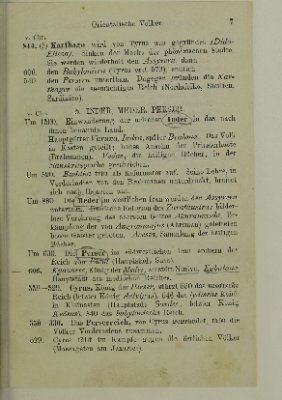 Orientalische Völker. 7
v. Chr.
814. (?) Karthago wird von Tyrus aus gegründet (Dido-
Elissa). Sinken der Macht der phönizischen Städte.
Sie werden wiederholt den Assyrern, dann
600. den Babyloniern (Tyrus erst 573), endlich
540 den Persern unterthan. Dagegen gründen die Kar-
thager ein mächtiges Reich (Nordafrika, Spanien,
Sardinien).
5. INDER. MEDER. PERSER.
v. Chr.
Um 1500. Einwanderung der Inder in das nach
ihnen benannte Land.
Hauptgötter Varuna, Indra, später Brahma. Das Volk
in Kasten geteilt; hohes Ansehen der Priesterkaste
(Brahmanen). Vedas, die heiligen Bücher, in der
Sanskritsprache geschrieben.
Um 500. Buddha tritt als Reformator auf. Seine Lehre, in
Vorderindien von den Brahmanen unterdrückt, breitet
sich nach Osten
Um 800 Die Meder im westlichen Iran werden den Assyrern
unterthan. Religion des Zarathustra: bilder-
lose Verehrung des obersten Gottes Auramazda. Be-
kämpfung der von Angramainjus (Ahriman) geleiteten
bösen Geister geboten. Avesta, Sammlung der heiligen
Bücher.
Um 650. Die Perser im südwestlichen Iran erobern das
Reich (Hauptstadt Susa).
606. Kyaxares, König der Meder, zerstört Ninive. Ekbatana
Hauptstadt des medischen Reiches.
559—529. Cyrus, König der Perser, stürzt 550 das medische
Reich (letzter König Astyages), 546 das lydische Reich
in Kleinasien (Hauptstadt Sardes, letzter König
Krösus), 540 das babylonische Reich.
558—330. Das Perserreich, von Cyrus gegründet, umfaßt die
Völker Vorderasiens zusammen.
529. Cyrus fällt im Kampfe gegen die östlichen Völker
(Massageten am Jaxartes).